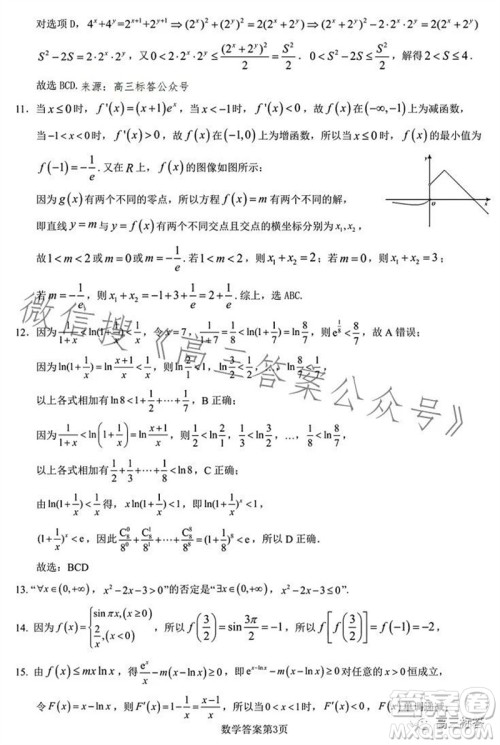 对选项D，4^x+4^y=2^{x+1}+2^{y+1} ⇒ (2^x)^2+(2^y)^2=2(2^x+2^y) ⇒ (2^x+2^y)^2
S^2-2S=2·2^x·2^y，又0<2·2^x·2^y≤(2^x+2^y)^2/2=S^2/2. 0<S^2-2S≤S^2/2，解得2<S≤4.
故选BCD.来源：高三标答公众号
11. 当x≤0时，f'(x)=(x+1)e^x，故当x≤-1时，f'(x)≤0，故f(x)在(-∞,-1)上为减函数，
当-1<x<0时，f'(x)>0，故f(x)在(-1,0)上为增函数，所以当x≤0时，f(x)的最小值为
f(-1)=-1/e.又在R上，f(x)的图像如图所示：
因为g(x)有两个不同的零点，所以方程f(x)=m有两个不同的解，
即直线y=m与y=f(x)有两个不同交点且交点的横坐标分别为x₁,x₂，
故1<m<2或m=0或m=-1/e.若1<m<2，则x₁+x₂=2；若m=0，则x₁+x₂=3；
若m=-1/e，则x₁+x₂=-1+3+1/e=2+1/e.综上，选ABC.
12. 因为1/(1+x)<ln(1+1/x)<1/x，令x=7，1/(1+7)<ln(1+1/7)=ln 8/7<1/7，则e^{1/8}<8/7，故A错误；
因为ln(1+1/x)=ln (x+1)/x<1/x，则ln 2/1<1，ln 3/2<1/2，…，ln 8/7<1/7，
以上各式相加有ln8<1+1/2+…+1/7，B正确；
因为1/(1+x)<ln(1+1/x)=ln (x+1)/x，则1/2<ln 2/1，1/3<ln 3/2，…，1/8<ln 8/7，
以上各式相加有1/2+1/3+…+1/8<ln8，C正确；
由ln(1+1/x)<1/x得，xln(1+1/x)<1，即ln(1+1/x)^x<1，
(1+1/x)^x<e，因此C_8^0/8^0+C_8^1/8^1+…+C_8^8/8^8=(1+1/8)^8<e，所以D正确．
故选：BCD
13. “∀x∈(0,+∞)，x^2-2x-3>0”的否定是“∃x∈(0,+∞)，x^2-2x-3≤0”.
14. 因为f(x)={sinπx,(x≥0) 2/x,(x<0)，所以f(3/2)=sin 3π/2=-1，所以f[f(3/2)]=f(-1)=-2，
15. 由f(x)≤mxlnx，得e^x/x-m(x-lnx)≥0，即e^{x-lnx}-m(x-lnx)≥0对任意的x>1恒成立，
令F(x)=x-lnx,x>1，则F'(x)=1-1/x=(x-1)/x>0，所以F(x)单调递增，
数学答案第3页
微信搜《高三答案公众号》
高三标答